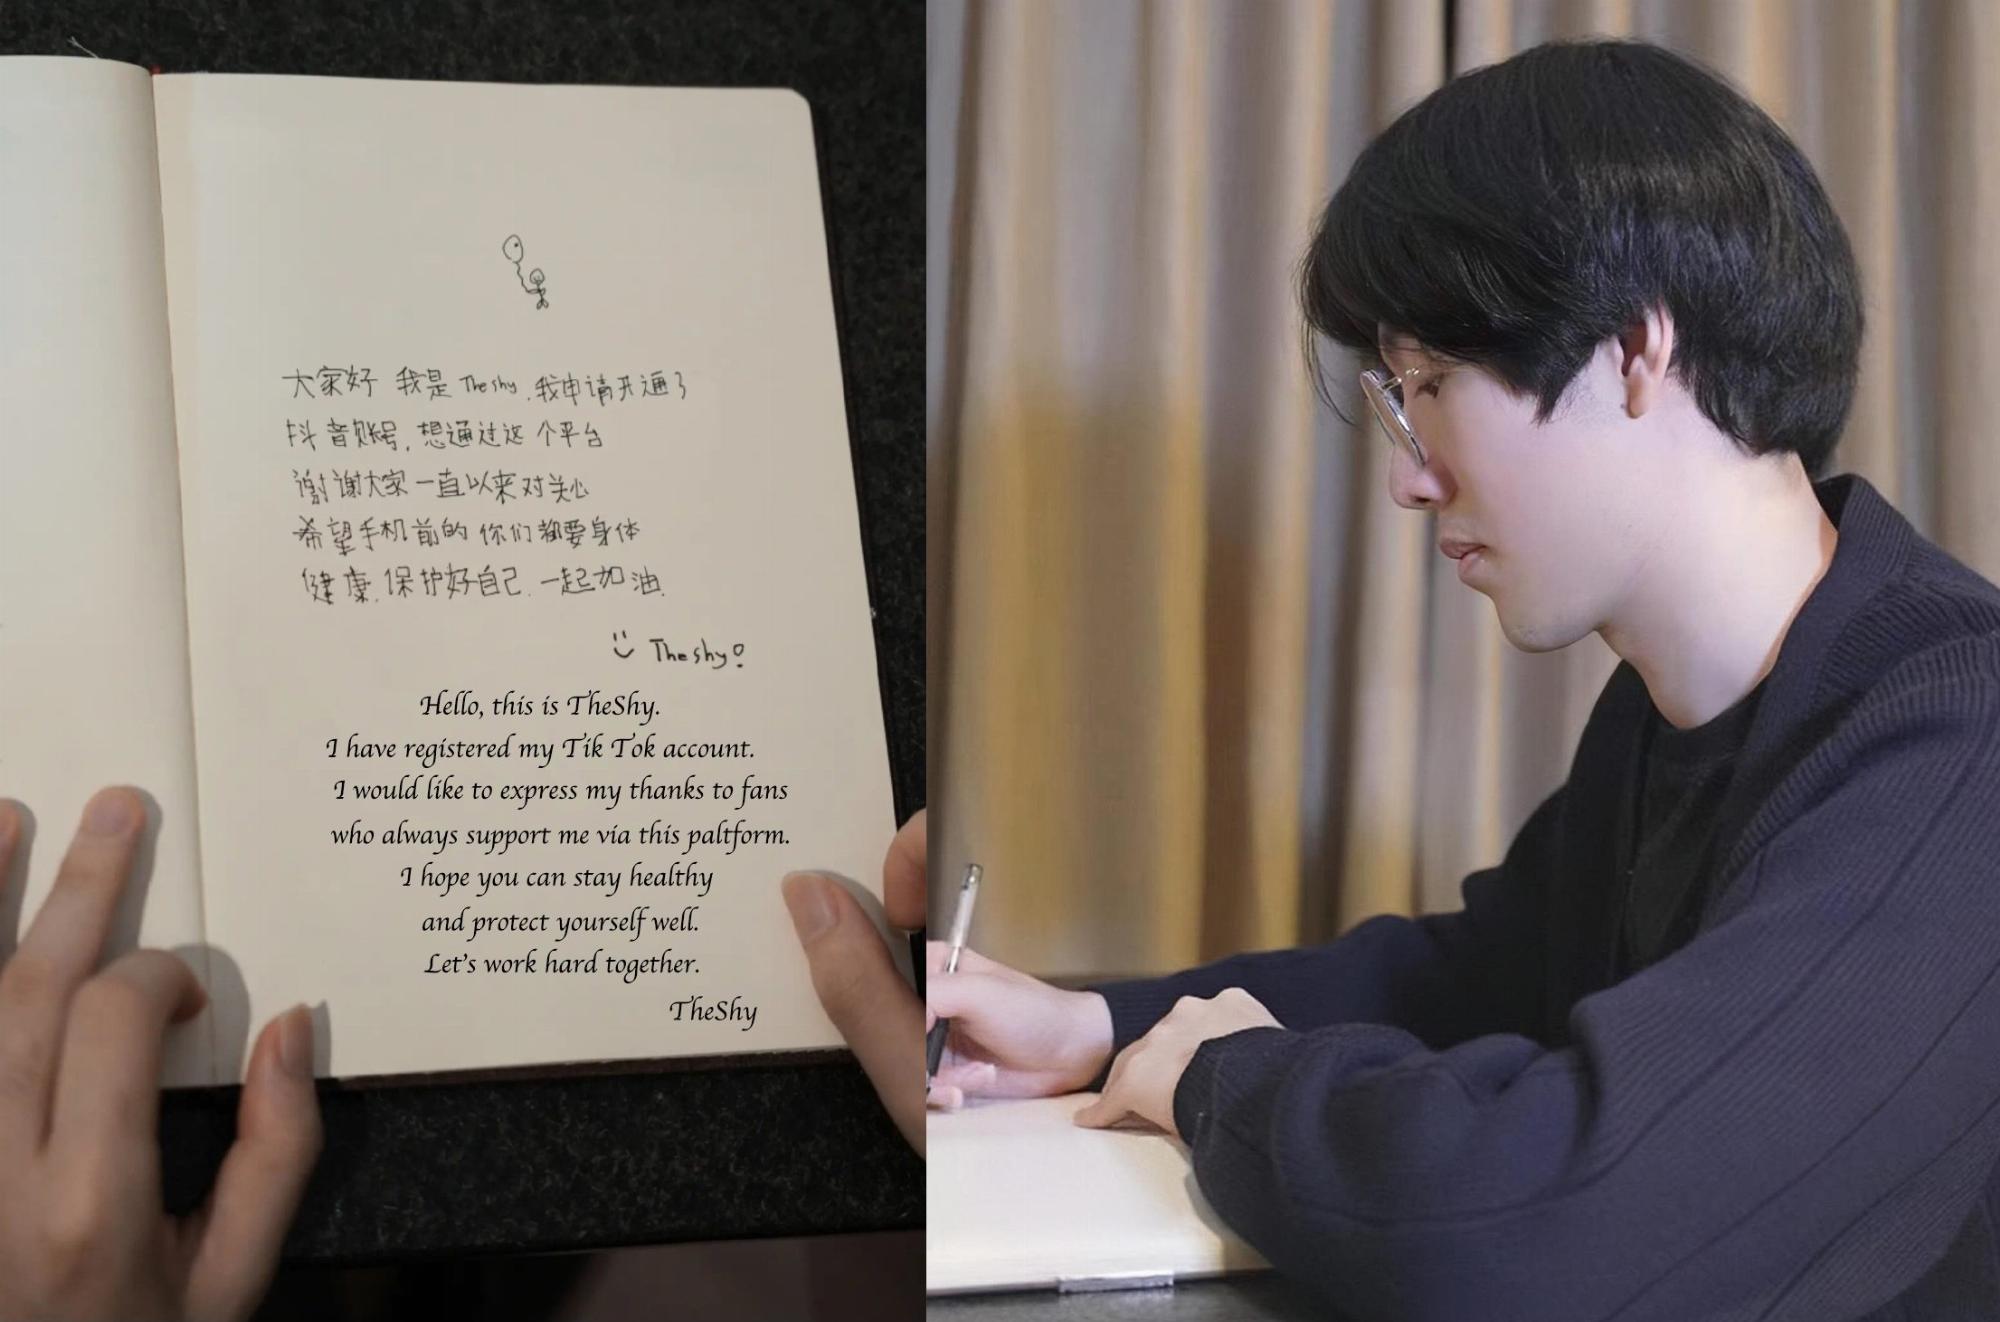 大家好 我是 Theshy.我申请开通了
抖音账号,想通过这个平台
谢谢大家一直以来对关心
希望手机前的你们都要身体
健康.保护好自己.一起加油.
Theshy!
Hello, this is TheShy.
I have registered my Tik Tok account.
I would like to express my thanks to fans
who always support me via this paltform.
I hope you can stay healthy
and protect yourself well.
Let's work hard together.
TheShy